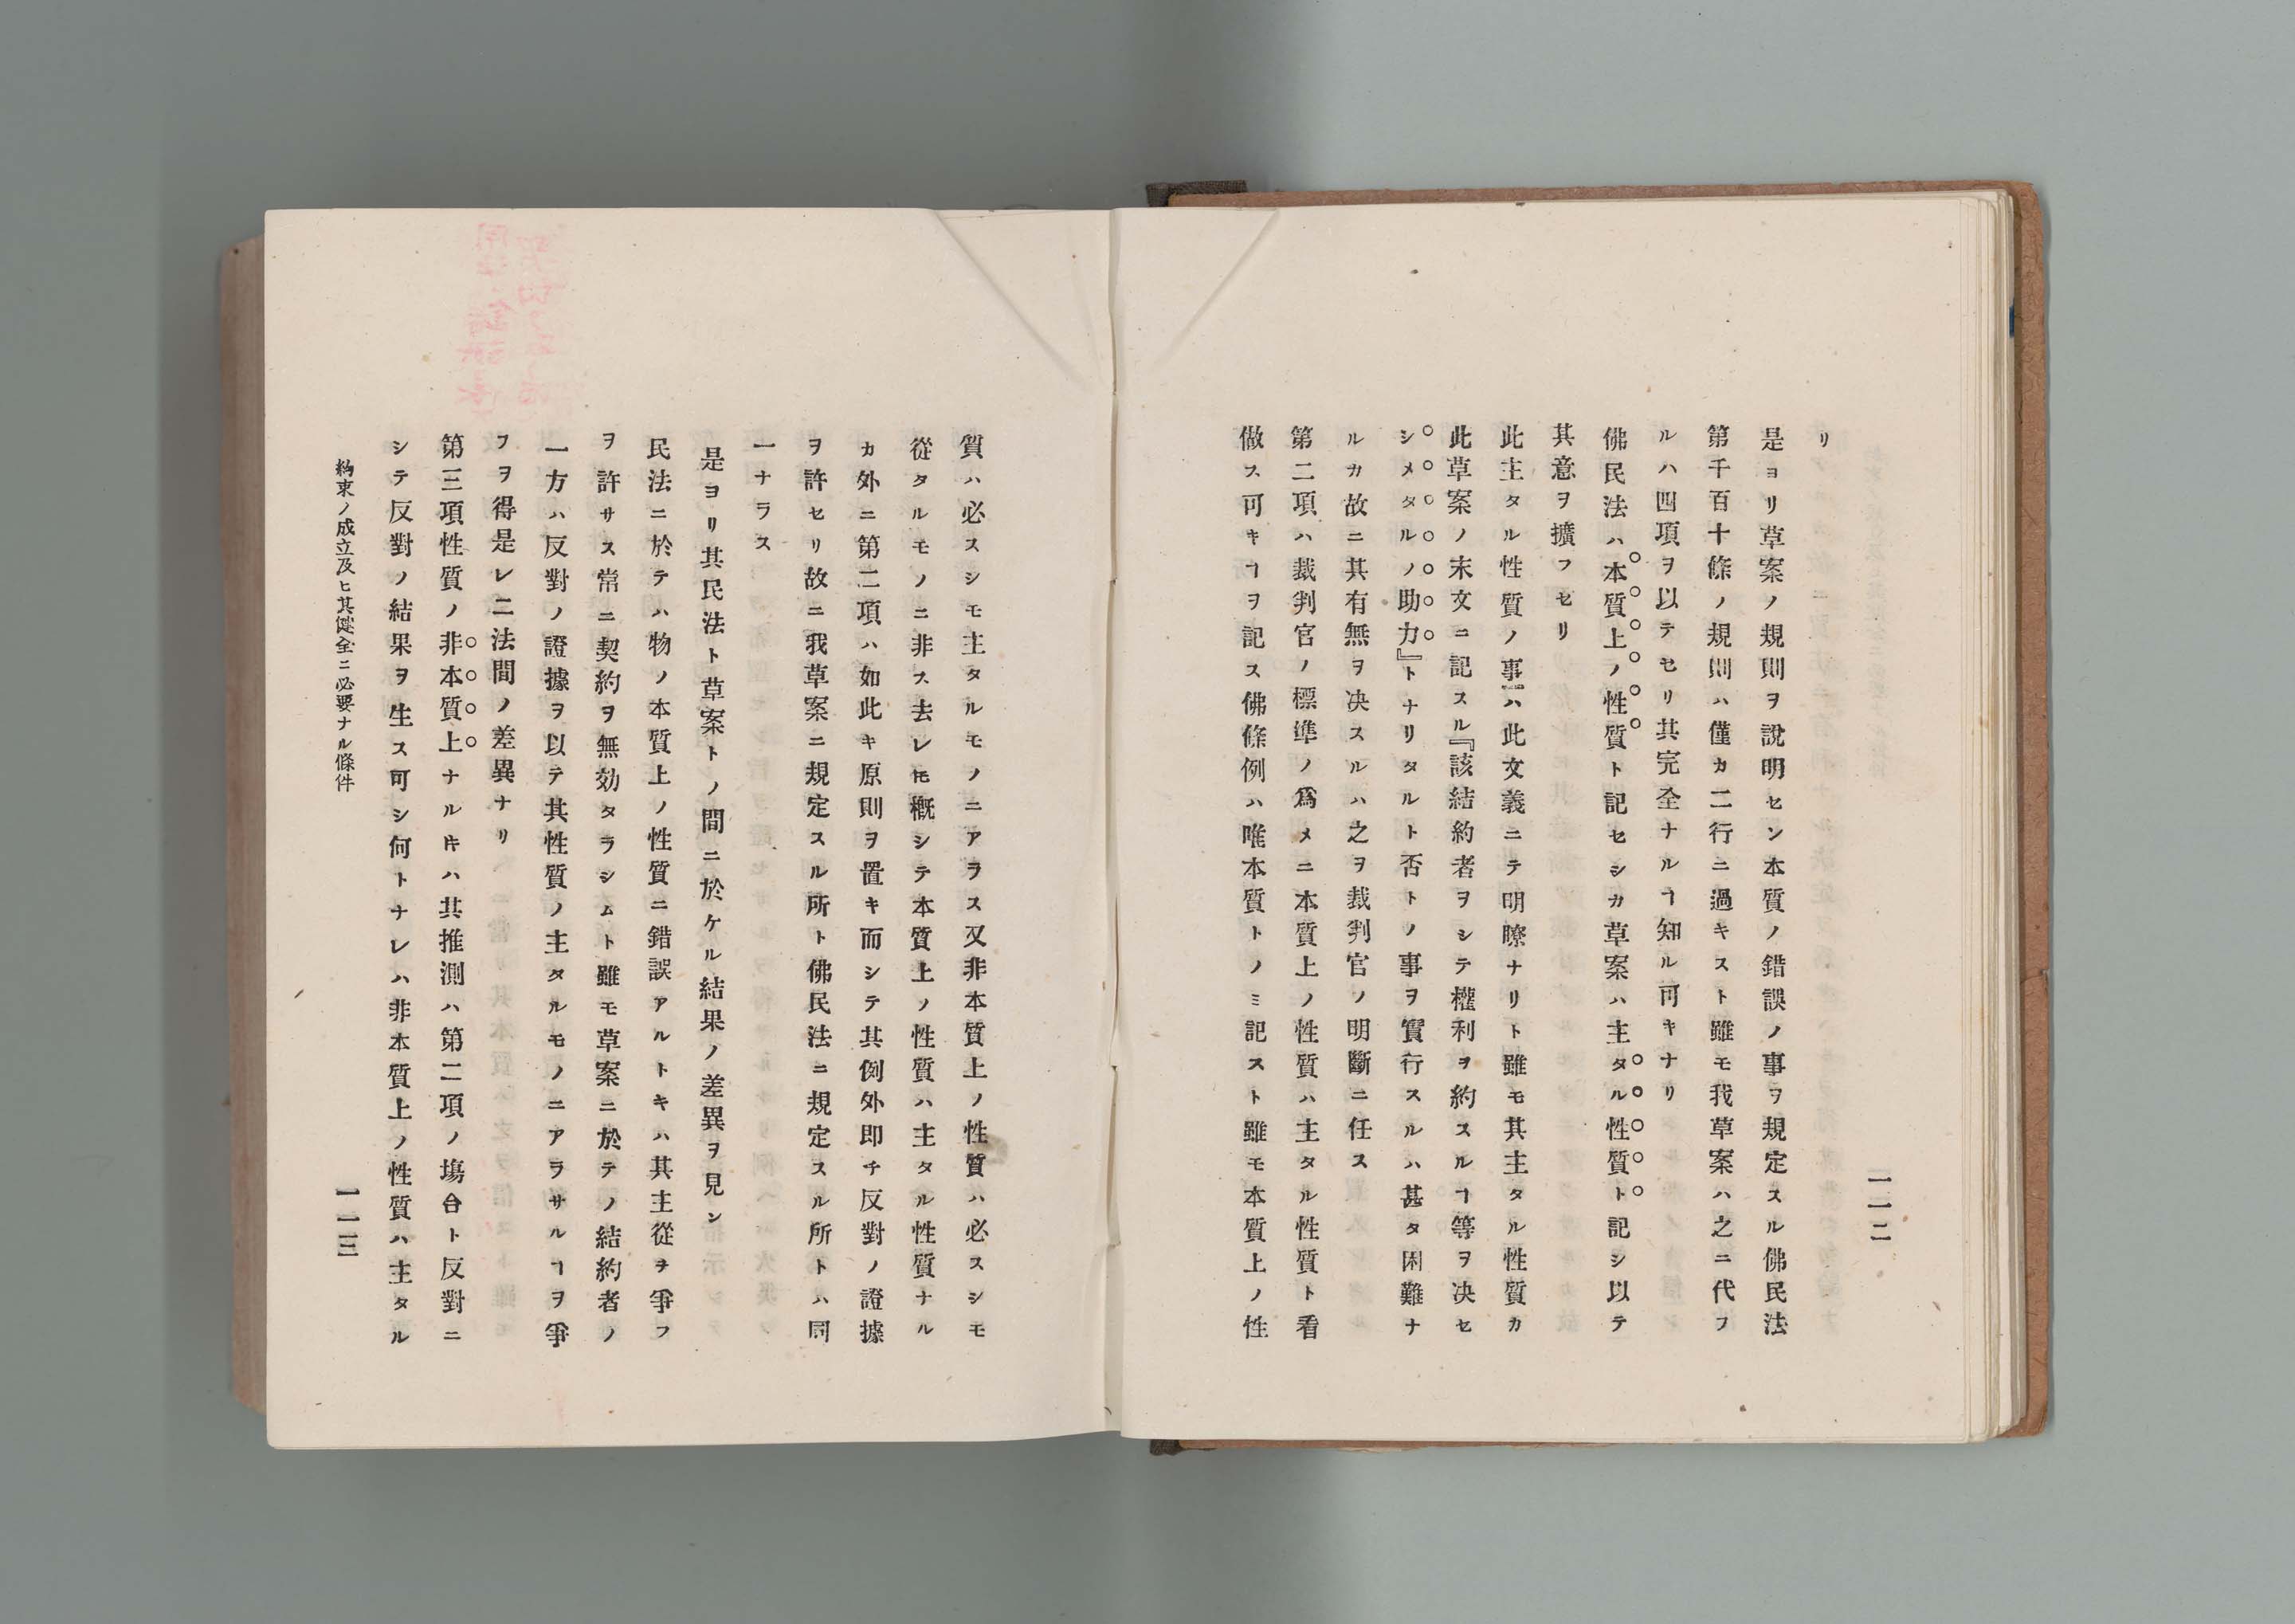 一一二
リ
是ヨリ草案ノ規則ヲ說明セン本質ノ錯誤ノ事ヲ規定スル佛民法
第千百十條ノ規則ハ僅カ二行ニ過キスト雖モ我草案ハ之ニ代フ
ルハ四項ヲ以テセリ其完全ナルヿ知ル可キナリ
佛民法ハ本質上ノ性質ト記セシカ草案ハ主タル性質ト記シ以テ
其意ヲ擴フセリ
此主タル性質ノ事ハ此文義ニテ明瞭ナリト雖モ其主タル性質カ
此草案ノ末文ニ記スル『該結約者ヲシテ權利ヲ約スルヿ等ヲ决セ
シメタルノ助力』トナリタルト否トノ事ヲ實行スルハ甚タ困難ナ
ルカ故ニ其有無ヲ决スルハ之ヲ裁判官ノ明斷ニ任ス
第二項ハ裁判官ノ標準ノ爲メニ本質上ノ性質ハ主タル性質ト看
做ス可キヿヲ記ス佛條例ハ唯本質トノミ記スト雖モ本質上ノ性
質ハ必スシモ主タルモノニアラス又非本質上ノ性質ハ必スシモ
從タルモノニ非ス去レ𪜈概シテ本質上ノ性質ハ主タル性質ナル
カ外ニ第二項ハ如此キ原則ヲ置キ而シテ其例外即チ反對ノ證據
ヲ許セリ故ニ我草案ニ規定スル所ト佛民法ニ規定スル所トハ同
一ナラス
是ヨリ其民法ト草案トノ間ニ於ケル結果ノ差異ヲ見ン
民法ニ於テハ物ノ本質上ノ性質ニ錯誤アルトキハ其主從ヲ爭フ
ヲ許サス常ニ契約ヲ無効タラシムト雖モ草案ニ於テノ結約者ノ
一方ハ反對ノ證據ヲ以テ其性質ノ主タルモノニアラサルヿヲ爭
フヲ得是レ二法間ノ差異ナリ
第三項性質ノ非本質上ナル𪜈ハ其推測ハ第二項ノ塲合ト反對ニ
シテ反對ノ結果ヲ生ス可シ何トナレハ非本質上ノ性質ハ主タル
約束ノ成立及ヒ其健全ニ必要ナル條件
一一三